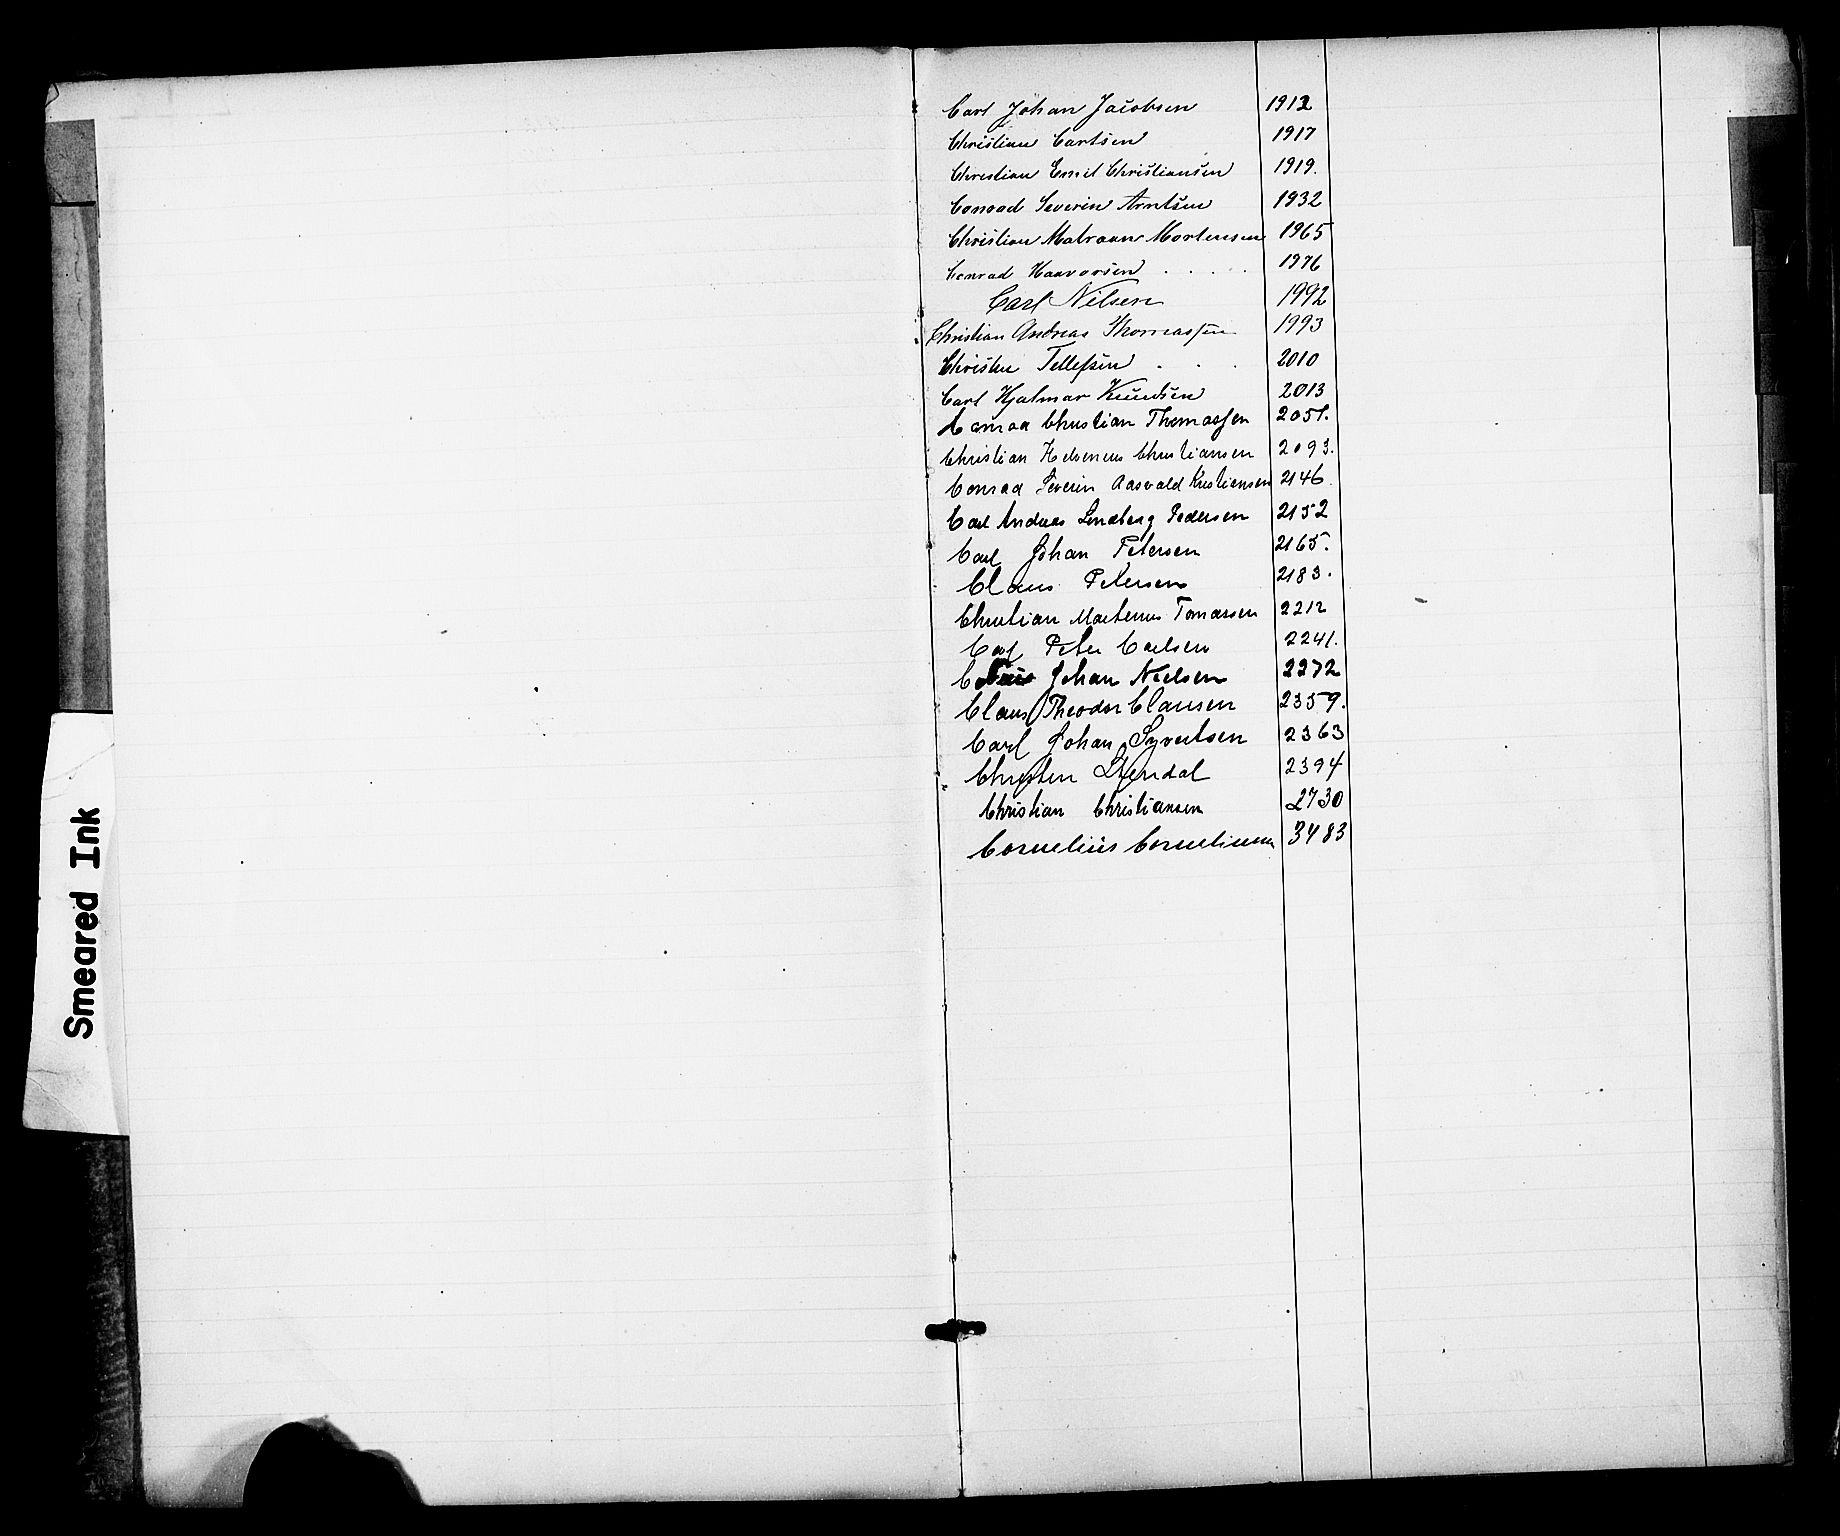 Carl Johan Jacobsen 1912
Christian Carlsen 1917
Christian Emil Christiansen 1919.
Conrad Severin Arntsen 1932
Christian Mortensen 1965
Conrad Haavorsen . . . . 1976
Carl Nilsen 1992
Christian Andreas Thomassen 1993
Christen Tellefsen . . . 2010
Carl Hjalmar Knudsen 2013
Conrad Christian Thomassen 2051.
Christian Christiansen 2093.
Conrad Severin Aasvald Kristiansen 2146
Carl Andreas Lindberg Pedersen 2152
Carl Johan Petersen 2165.
Claus Petersen 2183.
Christian Martenius Tomassen 2212
Carl Peter Carlsen 2241.
Johan Nielsen 2272
Claus Theodor Clausen 2359.
Carl Johan Syvertsen 2363
Christen Stendal 2394
Christian Christiansen 2730
Cornelius Corneliussen 3483
Smeared Ink